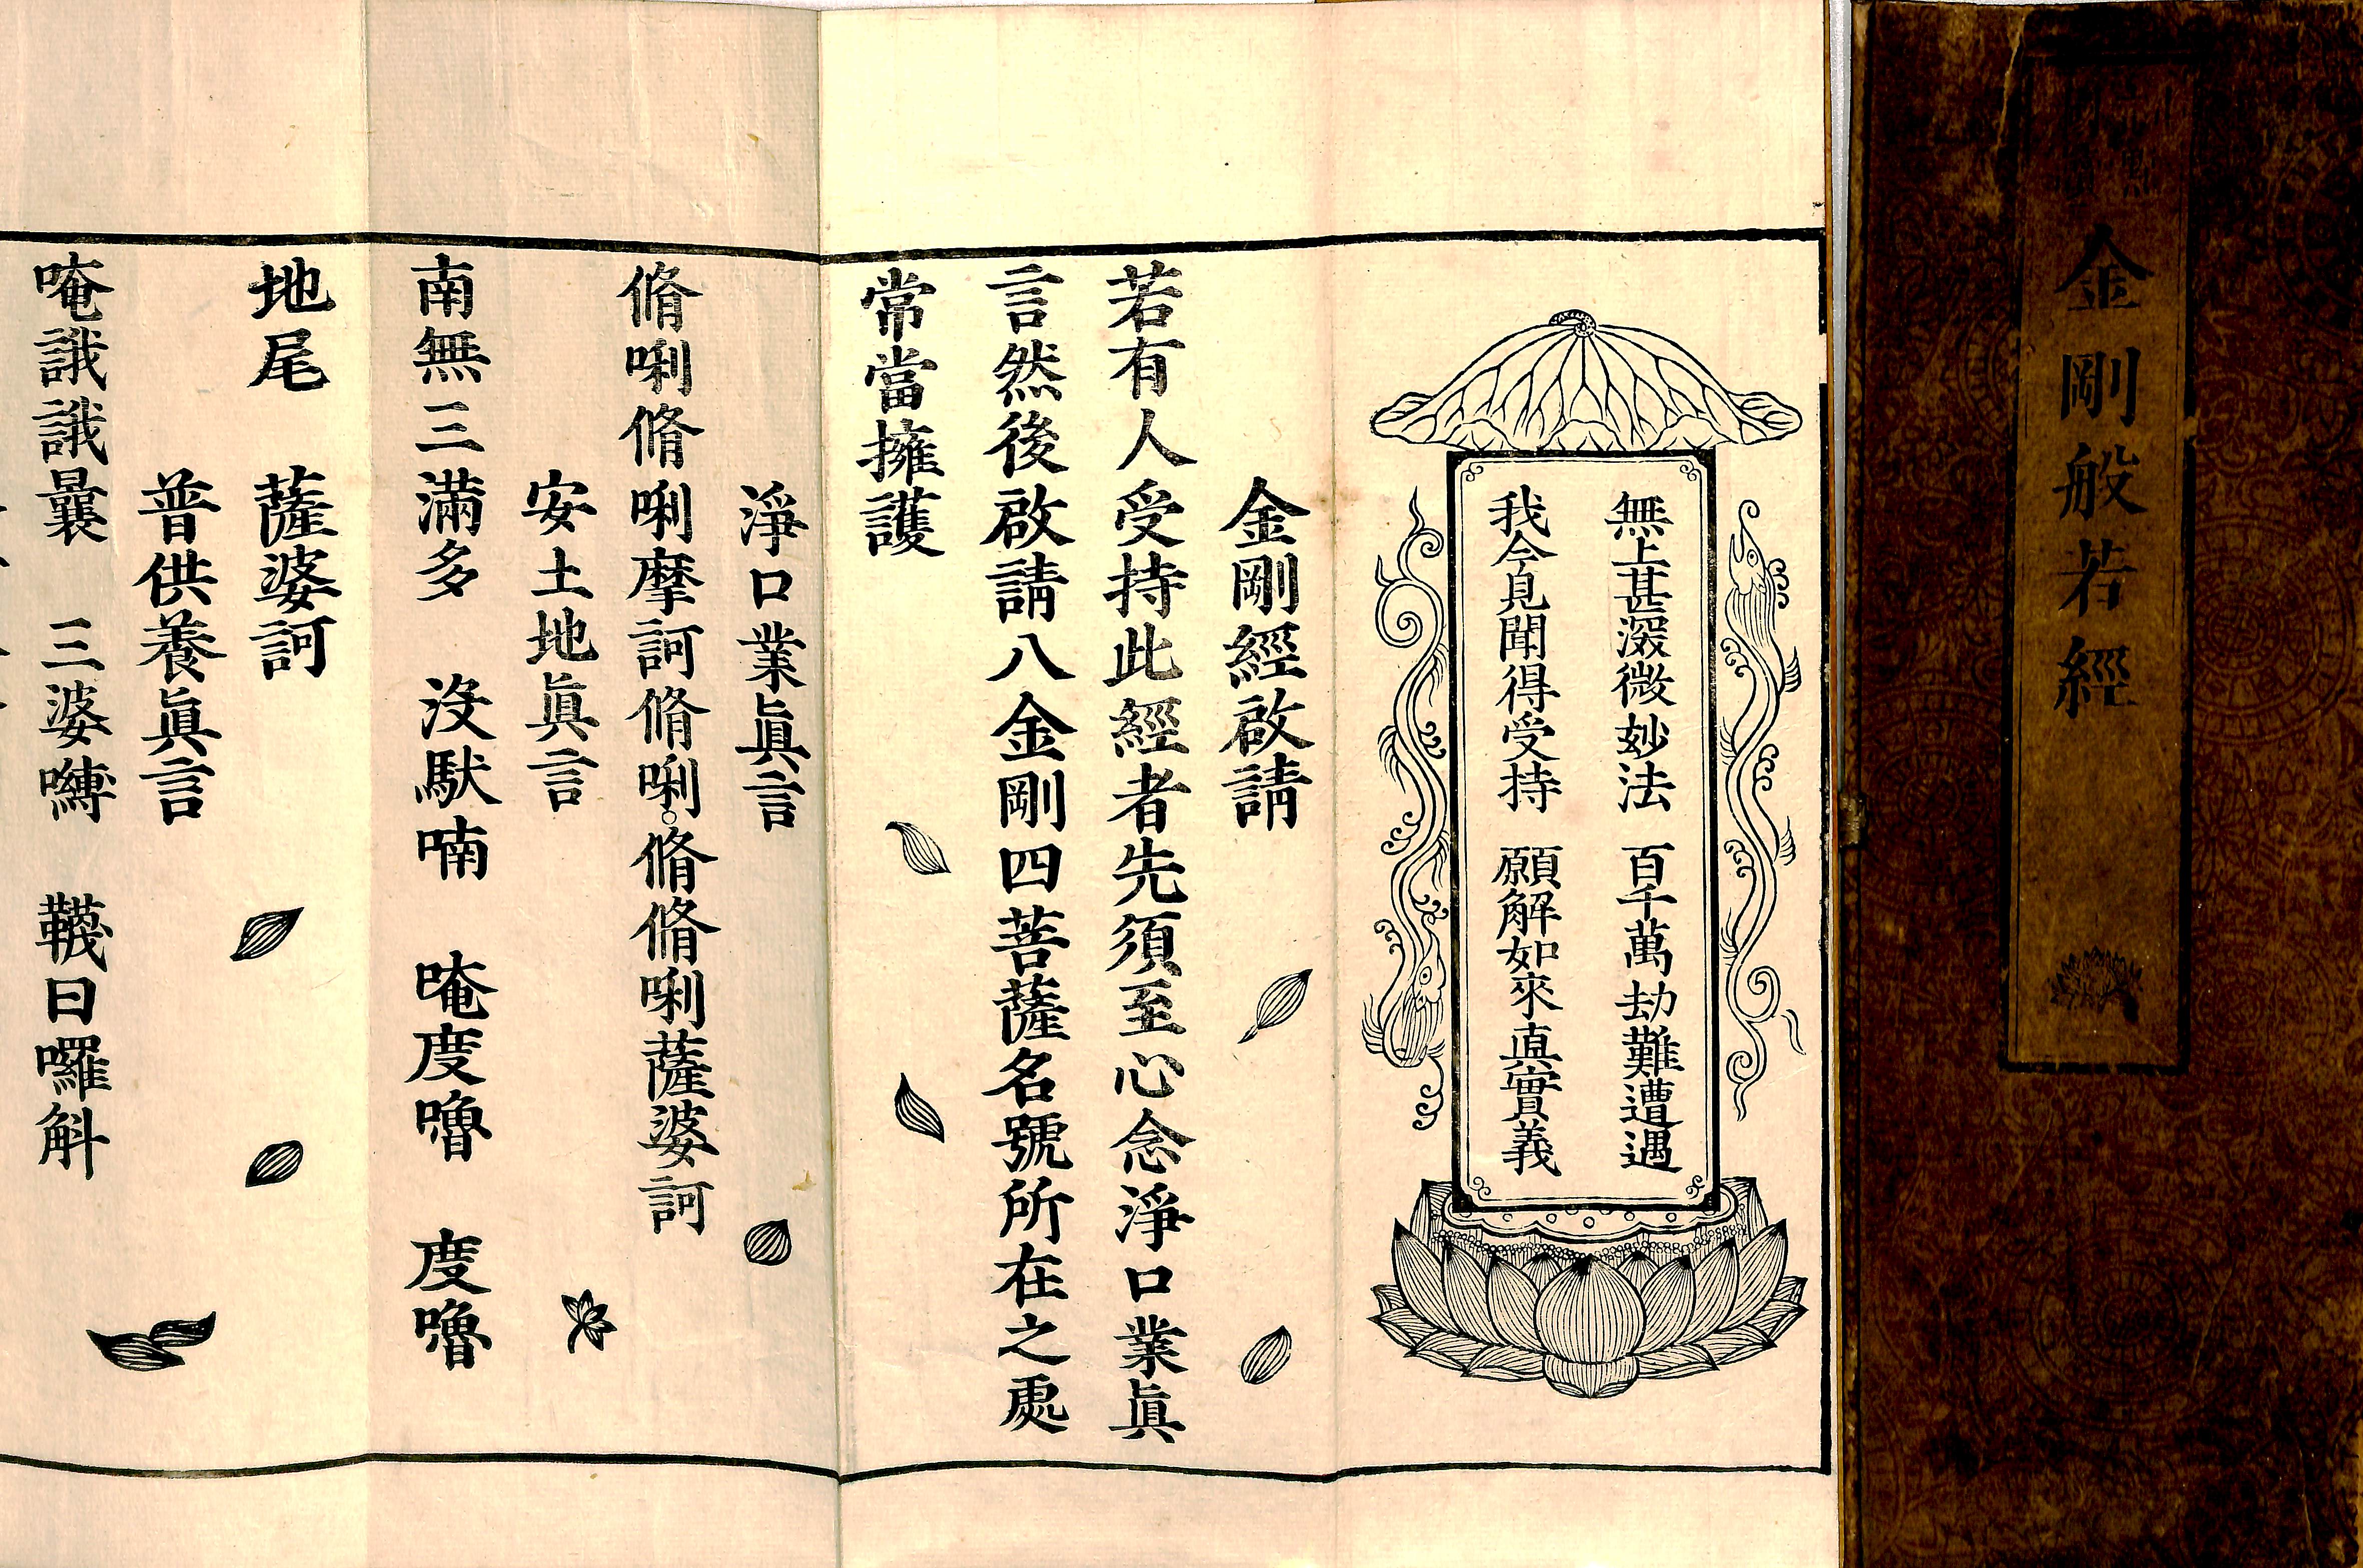 金剛般若經
無上甚深微妙法 百千萬劫難遭遇
我今見聞得受持 願解如來真實義
金剛經啟請
若有人受持此經者先須至心念淨口業眞
言然後啟請八金剛四菩薩名號所在之處
常當擁護
淨口業眞言
脩唎脩唎摩訶脩唎。脩脩唎薩婆訶
安土地眞言
南無三滿多 沒馱喃 唵度嚕 度嚕
地尾 薩婆訶
普供養眞言
唵誐誐曩 三婆嚩 韈日囉斛